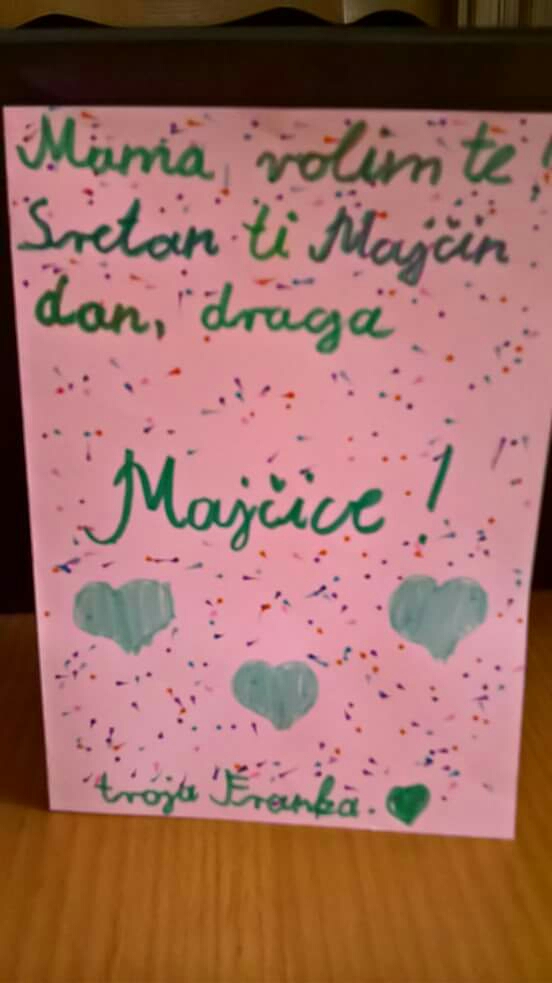 Mama, volim te!
Sretan ti Majčin
dan, draga
Majčice!
tvoja Franka.